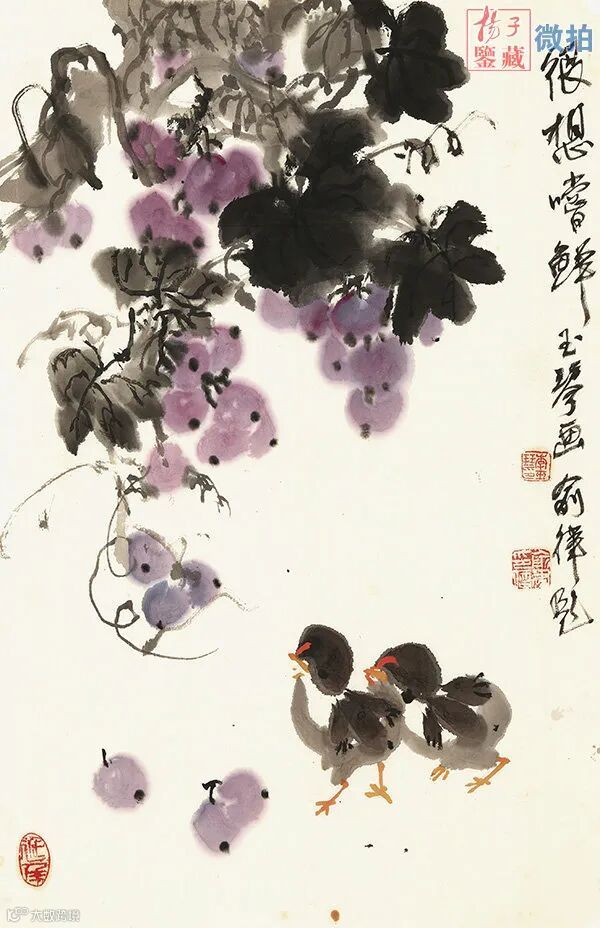 很想嚐鲜 玉琴画 俞律题
杨子
鉴藏
微拍
大数跨境